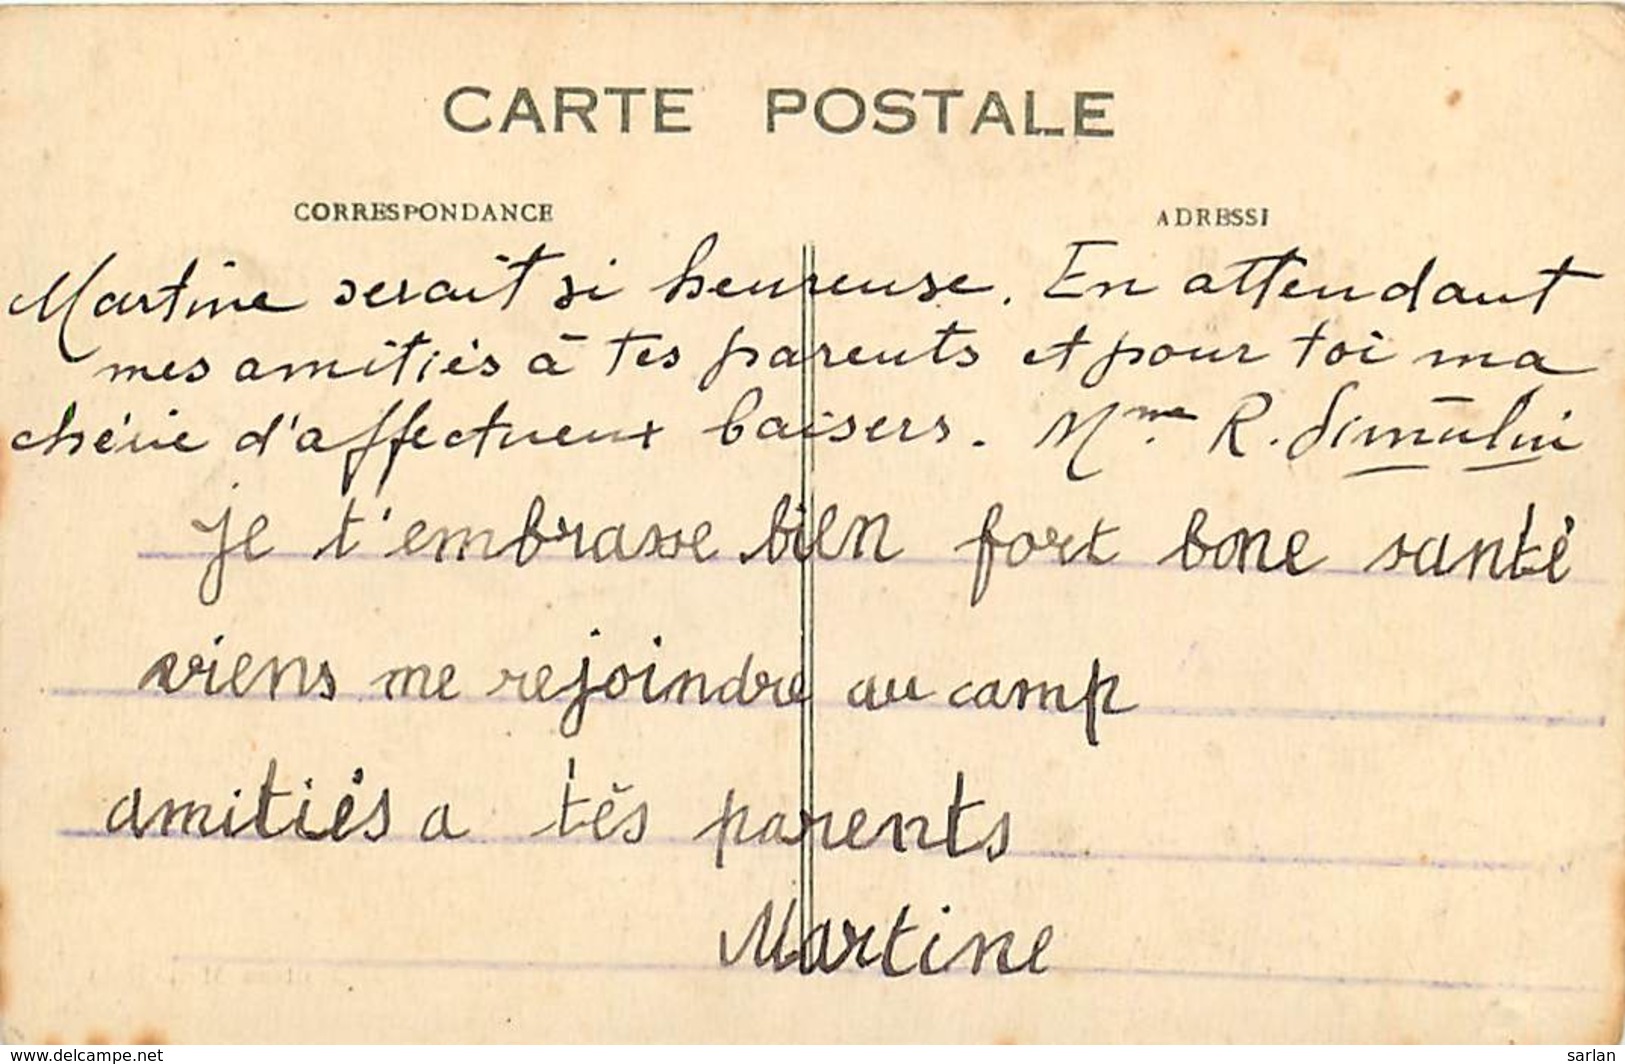 CARTE POSTALE
CORRESPONDANCE
ADRESSE
Martine serait si heureuse. En attendant
mes amitiés à tes parents et pour toi ma
chérie d'affectueux baisers. Mme R. Simulin
je t'embrasse bien fort bone santé
viens me rejoindre au camp
amitiés a tes parents
Martine
www.delcampe.net
sarlan